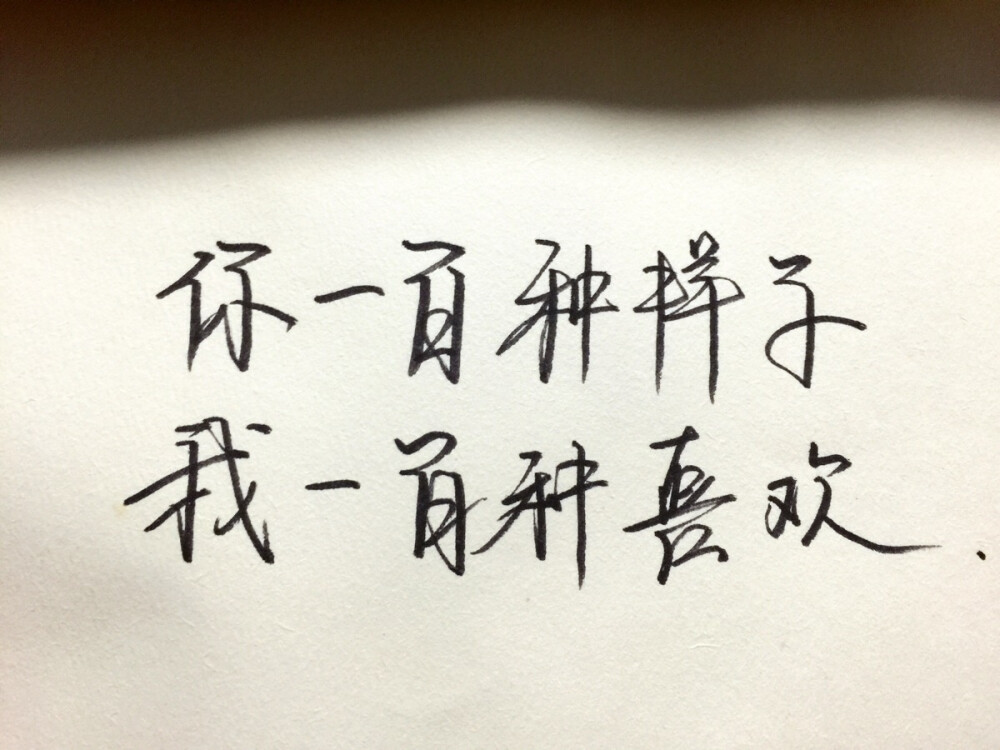 你一百种样子
我一百种喜欢.